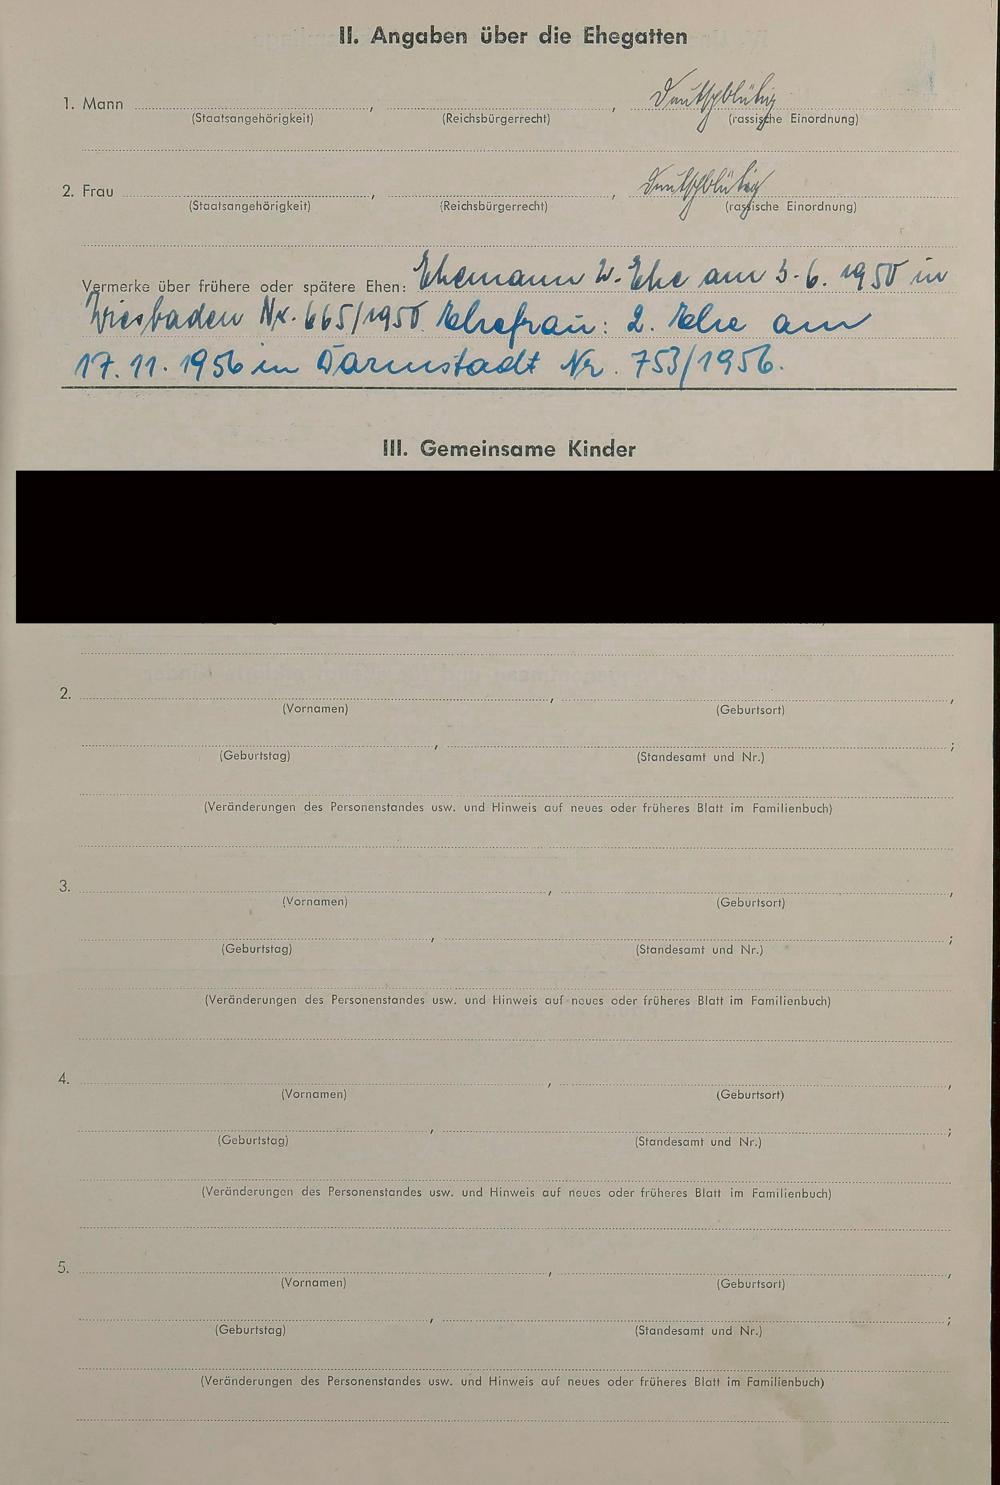 II. Angaben über die Ehegatten
1. Mann , , Deutschblütig
(Staatsangehörigkeit) (Reichsbürgerrecht) (rassische Einordnung)
2. Frau , , Deutschblütig
(Staatsangehörigkeit) (Reichsbürgerrecht) (rassische Einordnung)
Vermerke über frühere oder spätere Ehen: Ehemann W. Ehe am 3.6.1950 in
Wiesbaden Nr. 665/1950 Ehefrau: 2. Ehe am
17.11.1956 in Darmstadt Nr. 753/1956.
III. Gemeinsame Kinder
2. ,  ,
(Vornamen) (Geburtsort)
, ;
(Geburtstag) (Standesamt und Nr.)
(Veränderungen des Personenstandes usw. und Hinweis auf neues oder früheres Blatt im Familienbuch)
3. , ,
(Vornamen) (Geburtsort)
, ;
(Geburtstag) (Standesamt und Nr.)
(Veränderungen des Personenstandes usw. und Hinweis auf neues oder früheres Blatt im Familienbuch)
4. , ,
(Vornamen) (Geburtsort)
, ;
(Geburtstag) (Standesamt und Nr.)
(Veränderungen des Personenstandes usw. und Hinweis auf neues oder früheres Blatt im Familienbuch)
5. , ,
(Vornamen) (Geburtsort)
, ;
(Geburtstag) (Standesamt und Nr.)
(Veränderungen des Personenstandes usw. und Hinweis auf neues oder früheres Blatt im Familienbuch)